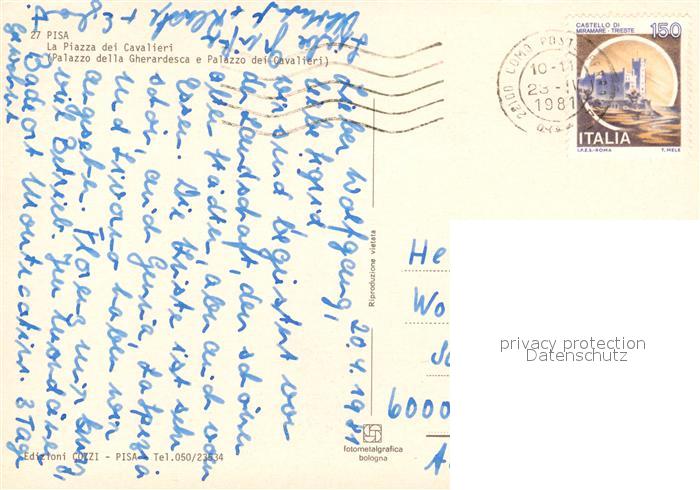 27 PISA
La Piazza dei Cavalieri
(Palazzo della Gherardesca e Palazzo dei Cavalieri)
20.4.1981
Lieber Wolfgang,
liebe Sigrid
wir sind begeistert von
der Landschaft, den schönen
alten Städten, aber auch vom
Essen. Die Küste ist sehr
schön, auch Genua, La Spezia
und Livorno haben wir
angesehen. Florenz nur kurz
viel Betrieb. Im mondänen
Badeort Montecatini 3 Tage
gewohnt
Liebe Grüße
Edizioni COZZI - PISA - Tel.050/23534
Riproduzione vietata
fotometalgrafica
bologna
22100 COMO POSTE
10-11
23-
1981
CASTELLO DI
MIRAMARE - TRIESTE
150
ITALIA
I.P.Z.S.-ROMA
T. MELE
He
Wo
6000
privacy protection
Datenschutz